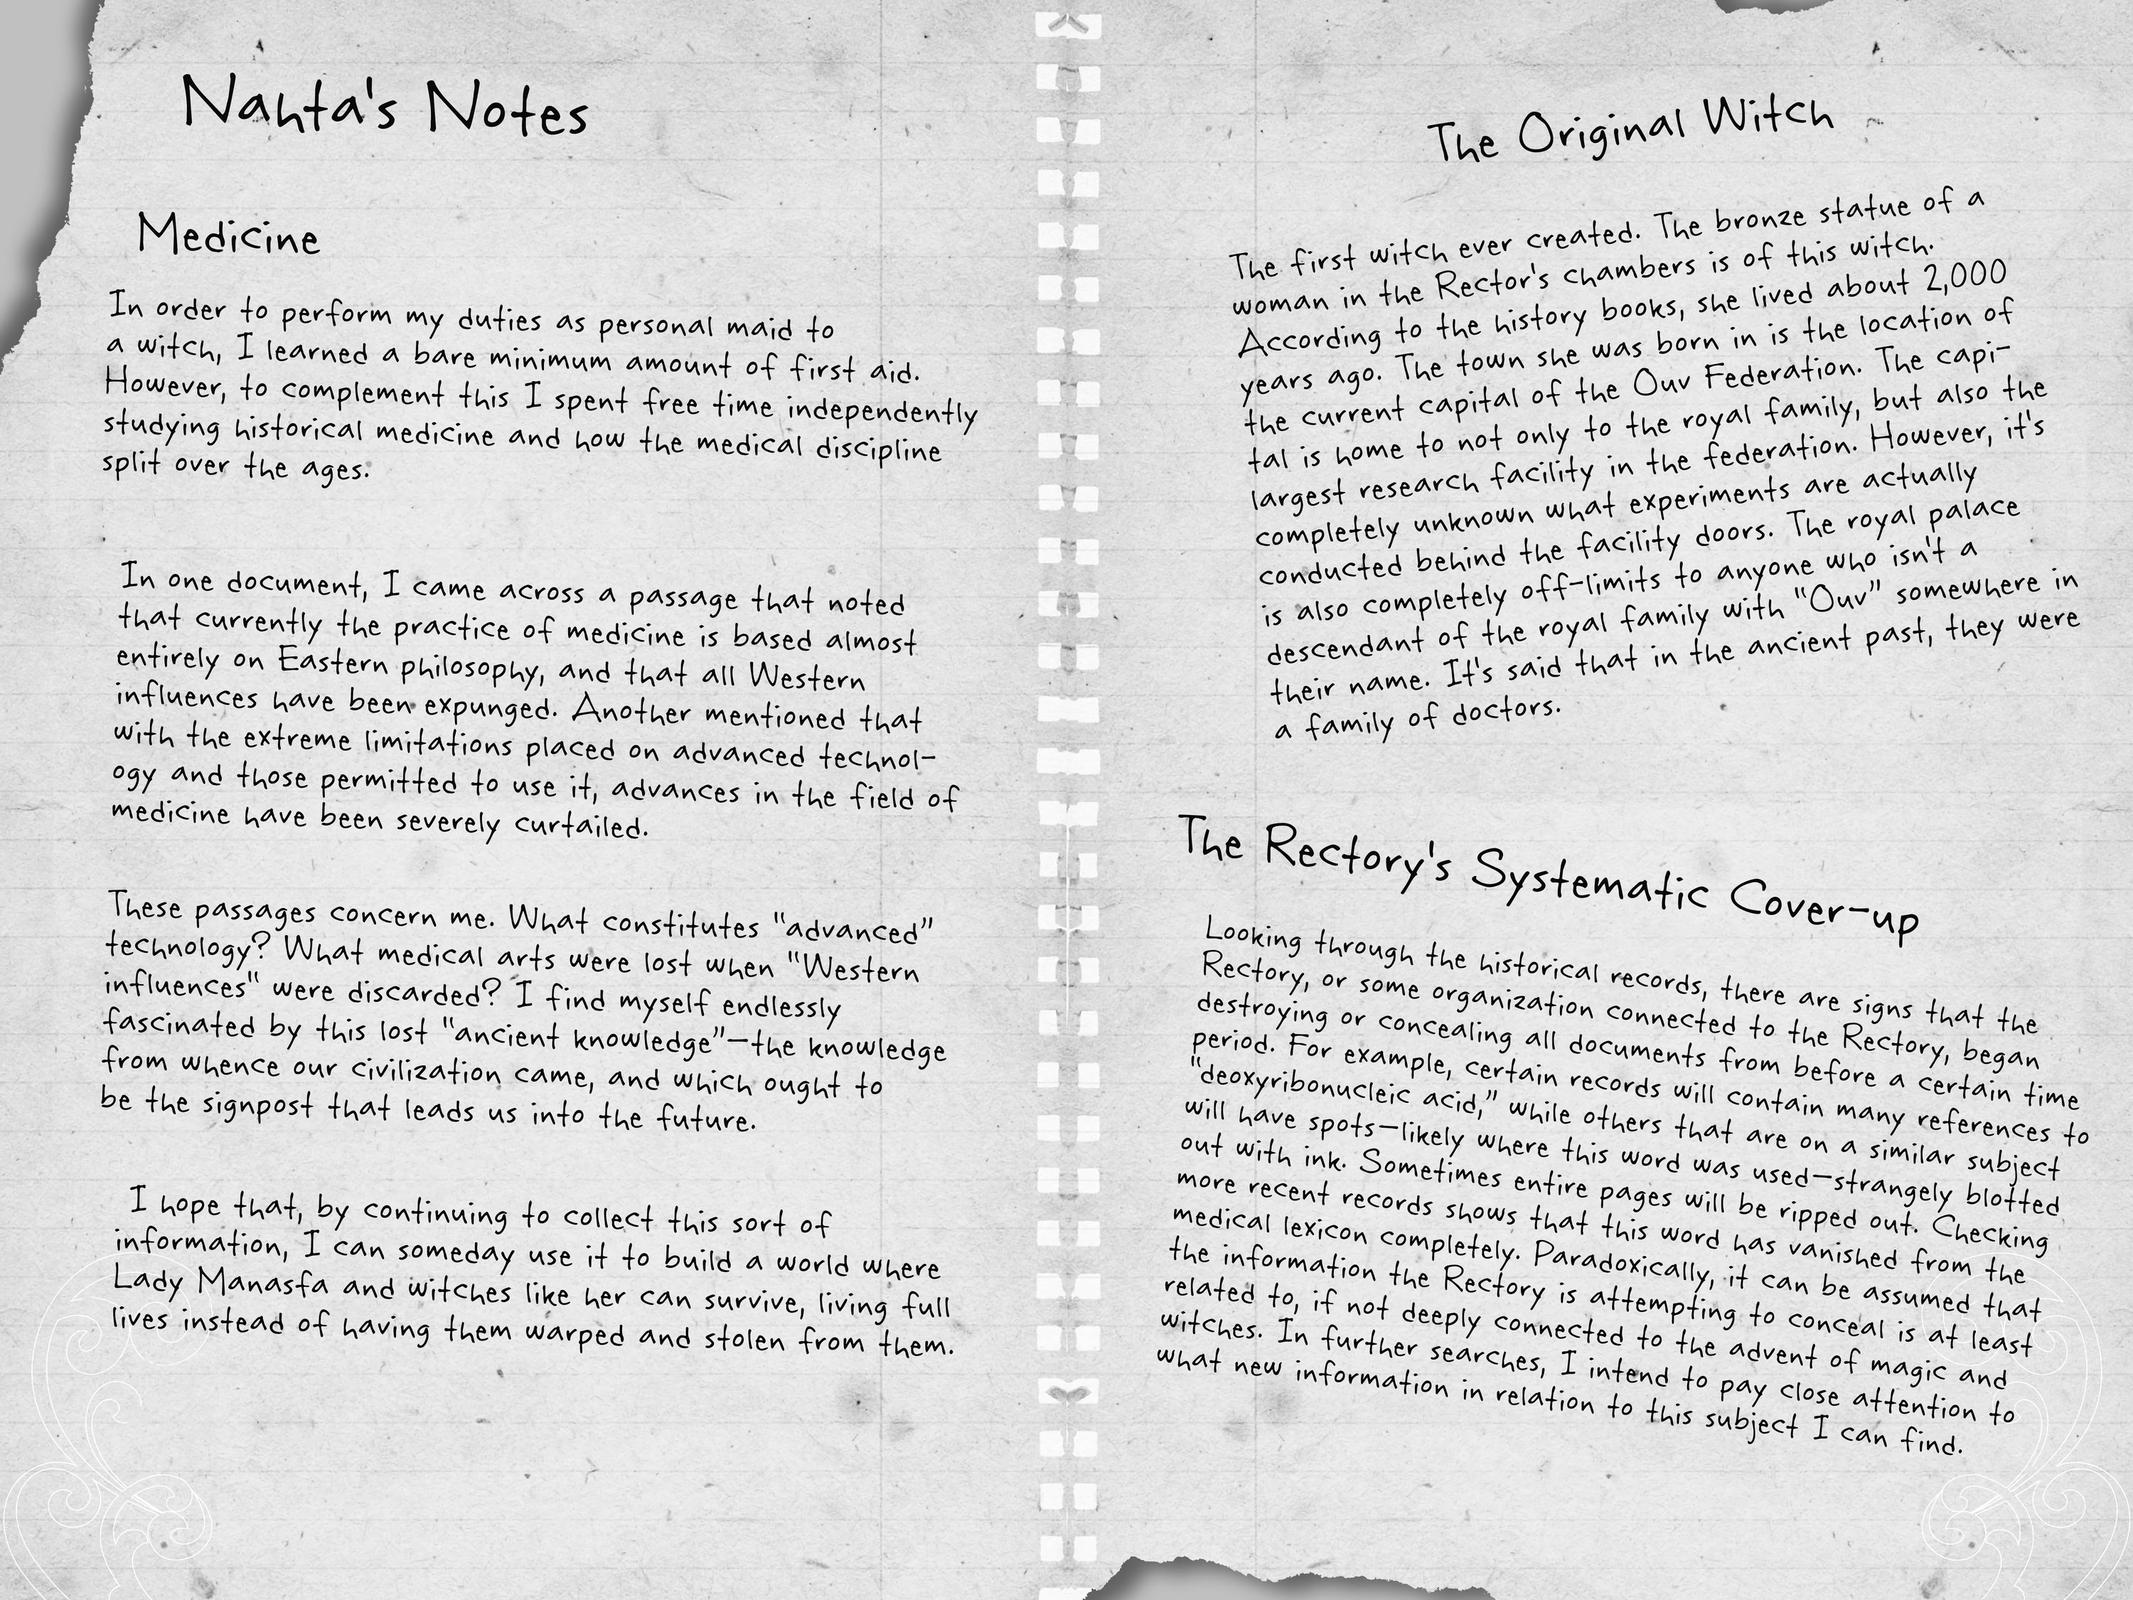 Nahta's Notes
Medicine
In order to perform my duties as personal maid to
a witch, I learned a bare minimum amount of first aid.
However, to complement this I spent free time independently
studying historical medicine and how the medical discipline
split over the ages.
In one document, I came across a passage that noted
that currently the practice of medicine is based almost
entirely on Eastern philosophy, and that all Western
influences have been expunged. Another mentioned that
with the extreme limitations placed on advanced technol-
ogy and those permitted to use it, advances in the field of
medicine have been severely curtailed.
These passages concern me. What constitutes "advanced"
technology? What medical arts were lost when "Western
influences" were discarded? I find myself endlessly
fascinated by this lost "ancient knowledge"—the knowledge
from whence our civilization came, and which ought to
be the signpost that leads us into the future.
I hope that, by continuing to collect this sort of
information, I can someday use it to build a world where
Lady Manasfa and witches like her can survive, living full
lives instead of having them warped and stolen from them.
The Original Witch
The first witch ever created. The bronze statue of a
woman in the Rector's chambers is of this witch.
According to the history books, she lived about 2,000
years ago. The town she was born in is the location of
the current capital of the Ouv Federation. The capi-
tal is home to not only to the royal family, but also the
largest research facility in the federation. However, it's
completely unknown what experiments are actually
conducted behind the facility doors. The royal palace
is also completely off-limits to anyone who isn't a
descendant of the royal family with "Ouv" somewhere in
their name. It's said that in the ancient past, they were
a family of doctors.
The Rectory's Systematic Cover-up
Looking through the historical records, there are signs that the
Rectory, or some organization connected to the Rectory, began
destroying or concealing all documents from before a certain time
period. For example, certain records will contain many references to
"deoxyribonucleic acid," while others that are on a similar subject
will have spots—likely where this word was used—strangely blotted
out with ink. Sometimes entire pages will be ripped out. Checking
more recent records shows that this word has vanished from the
medical lexicon completely. Paradoxically, it can be assumed that
the information the Rectory is attempting to conceal is at least
related to, if not deeply connected to the advent of magic and
witches. In further searches, I intend to pay close attention to
what new information in relation to this subject I can find.